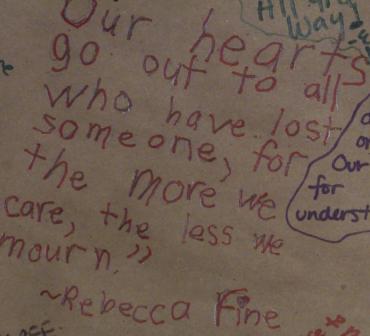 Our hearts
go out to all
who have lost
someone, for
the more we
care, the less we
mourn."
~Rebecca Fine
Way
Our
for